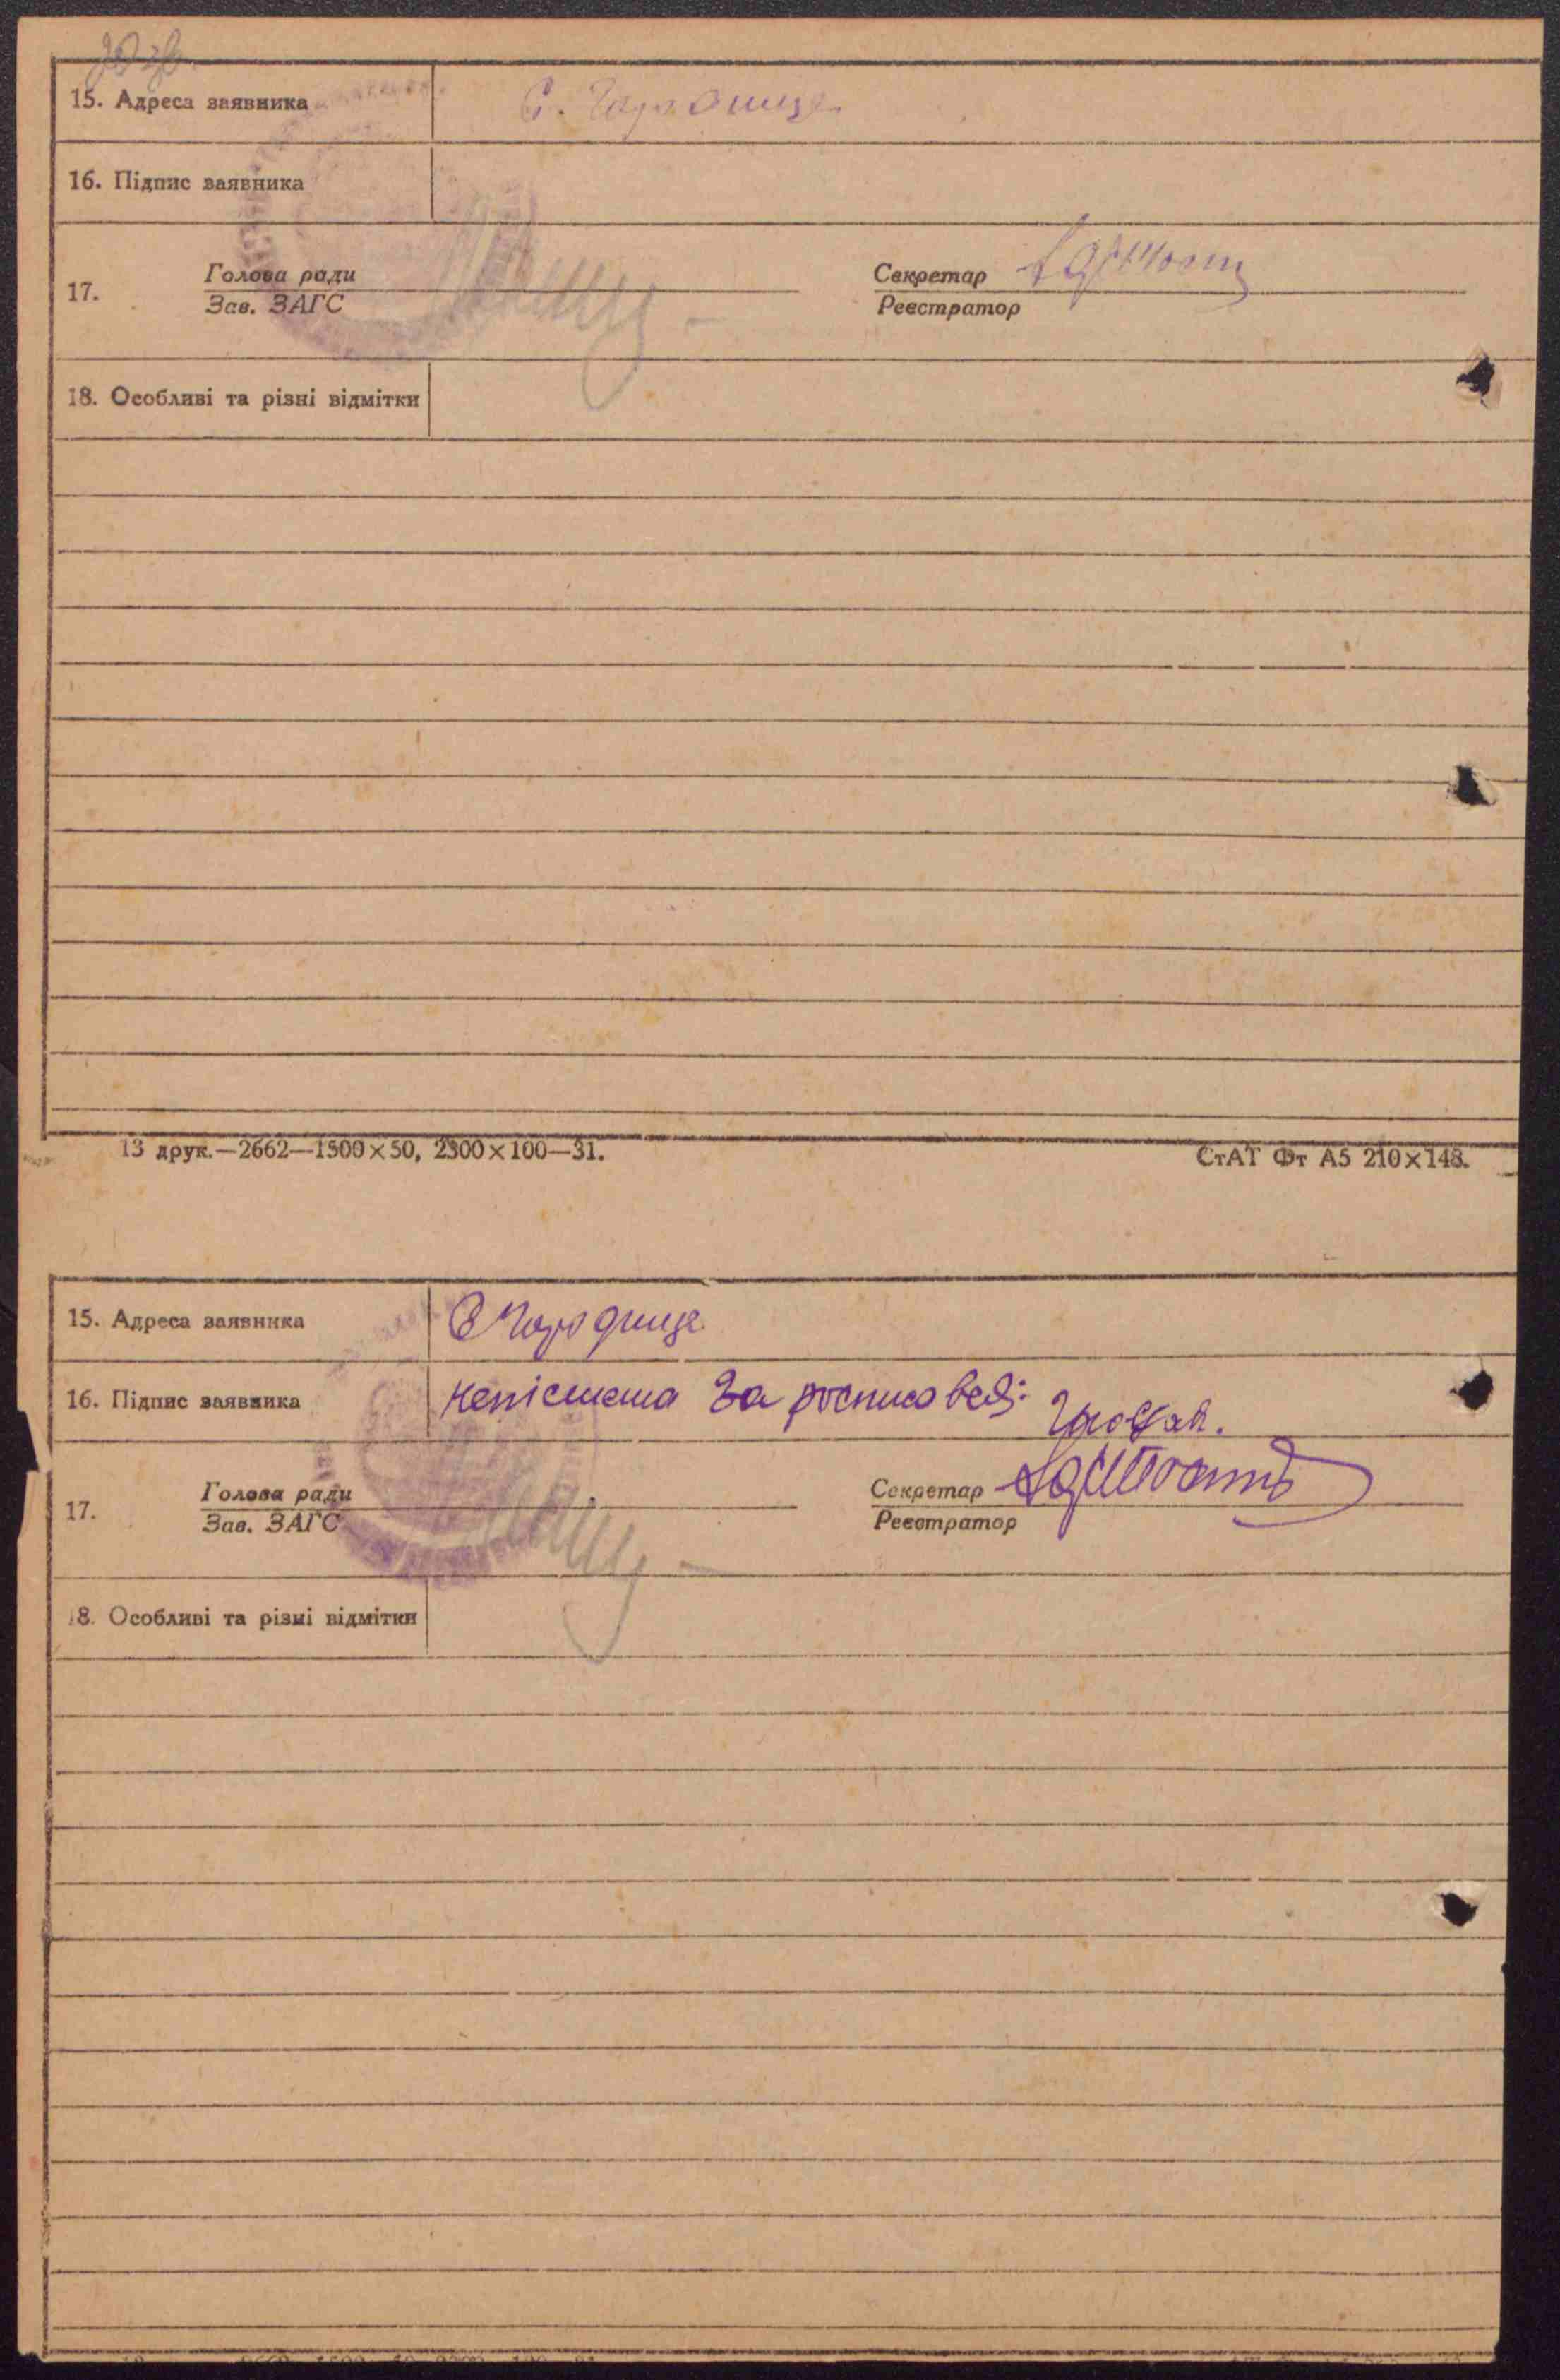 15. Адреса заявника С. Городище
16. Підпис заявника
17. Голова ради Секретар
Зав. ЗАГС Реєстратор
18. Особливі та різні відмітки
13 друк.—2662—1500×50, 2300×100—31. СтАТ Фт А5 210×148.
15. Адреса заявника С Городище
16. Підпис заявника непісмена За
17. Голова ради Секретар
Зав. ЗАГС Реєстратор
8. Особливі та різні відмітки